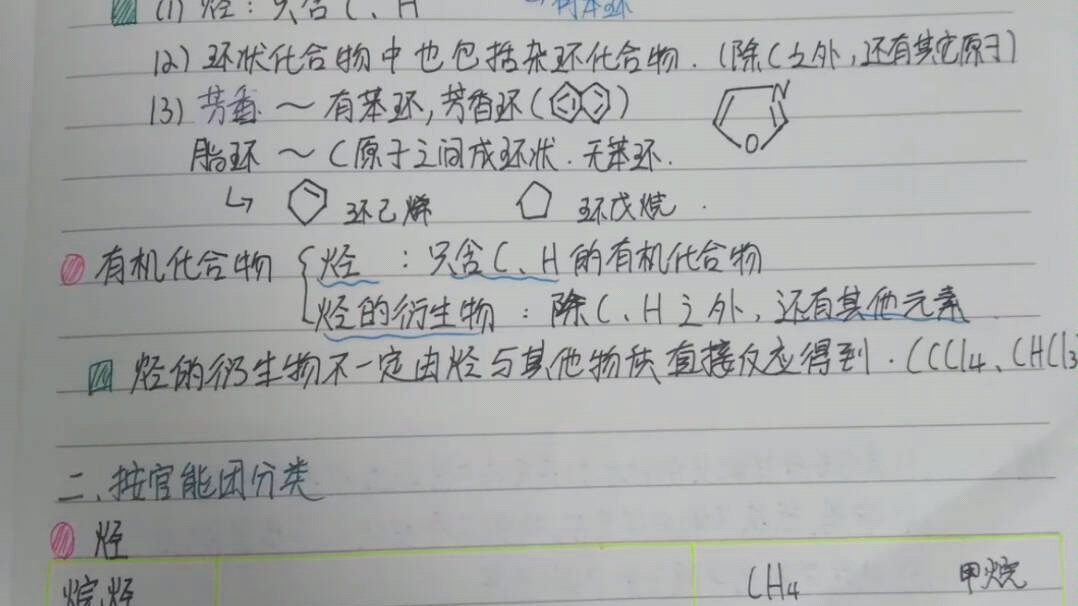 (1) 烃：只含C、H
(2) 环状化合物中也包括杂环化合物.（除C之外，还有其它原子）
(3) 芳香～有苯环，芳香环（）
N
O
脂环～C原子之间成环状.无苯环.
↳ 环己烯 环戊烷.
有机化合物 { 烃：只含C、H的有机化合物
烃的衍生物：除C、H之外，还有其他元素
烃的衍生物不一定由烃与其他物质直接反应得到.（CCl4、CHCl3
二、按官能团分类
烃
烷烃 CH4 甲烷